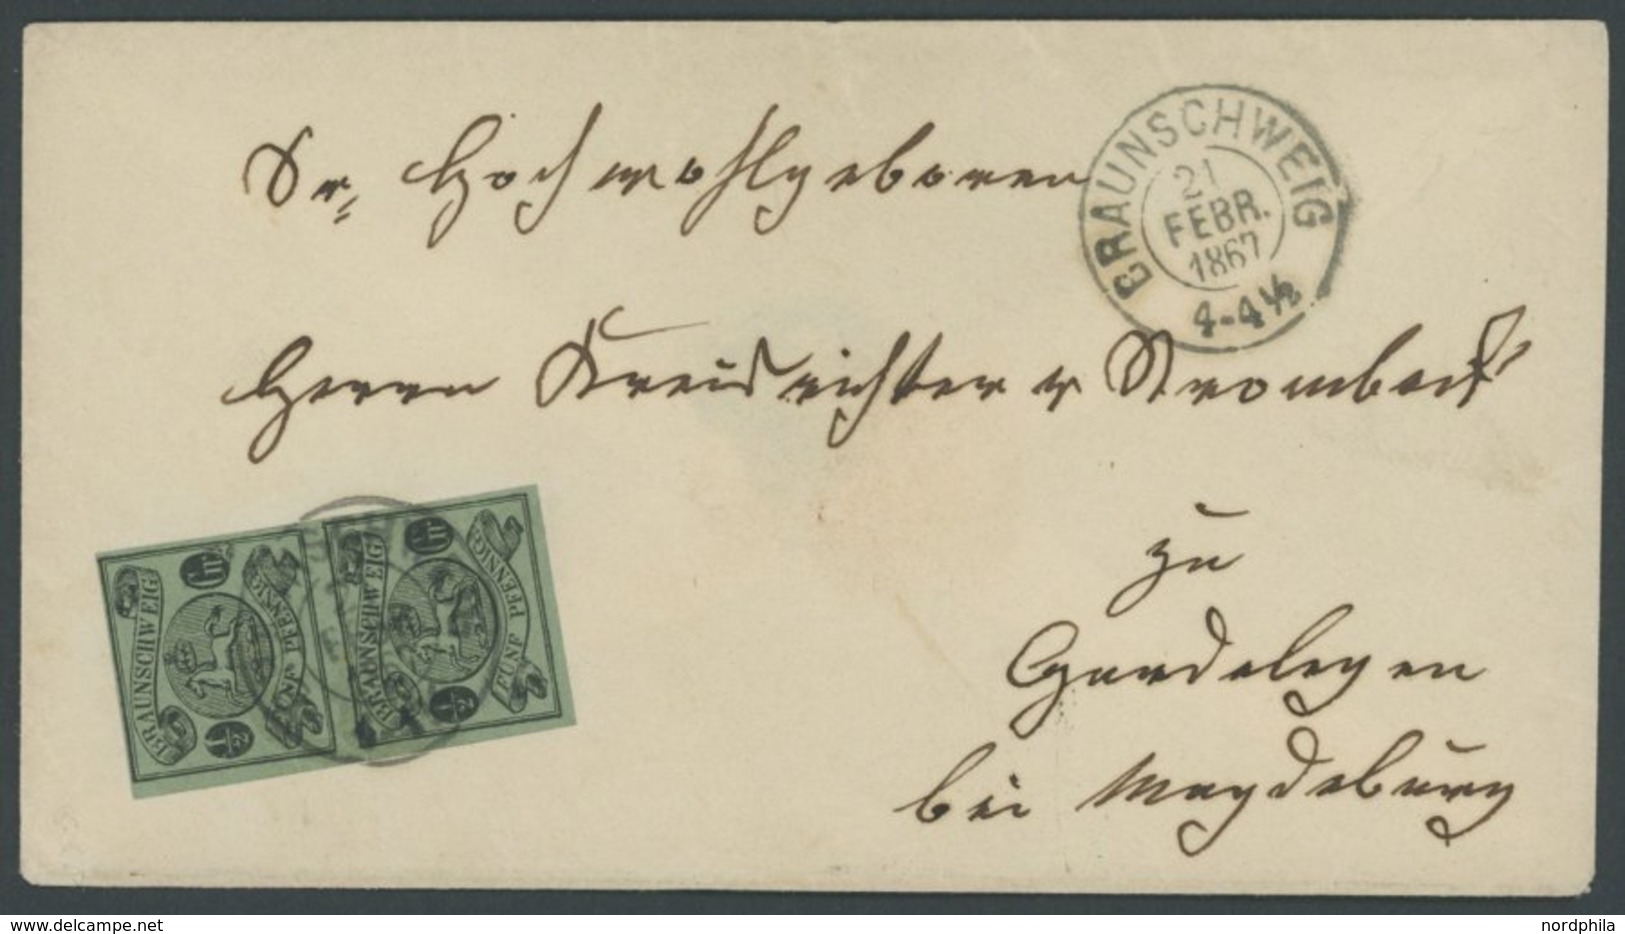 Sr. Hochwohlgeboren
BRAUNSCHWEIG
21
FEBR.
1867
4-4½
Herrn Kreisrichter v Strombeck
zu
Gardelegen
bei Magdeburg
BRAUNSCHWEIG
Gr
FÜNF PFENNIG
½
BRAUNSCHWEIG
Gr
FÜNF PFENNIG
½
www.delcampe.net
nordphila